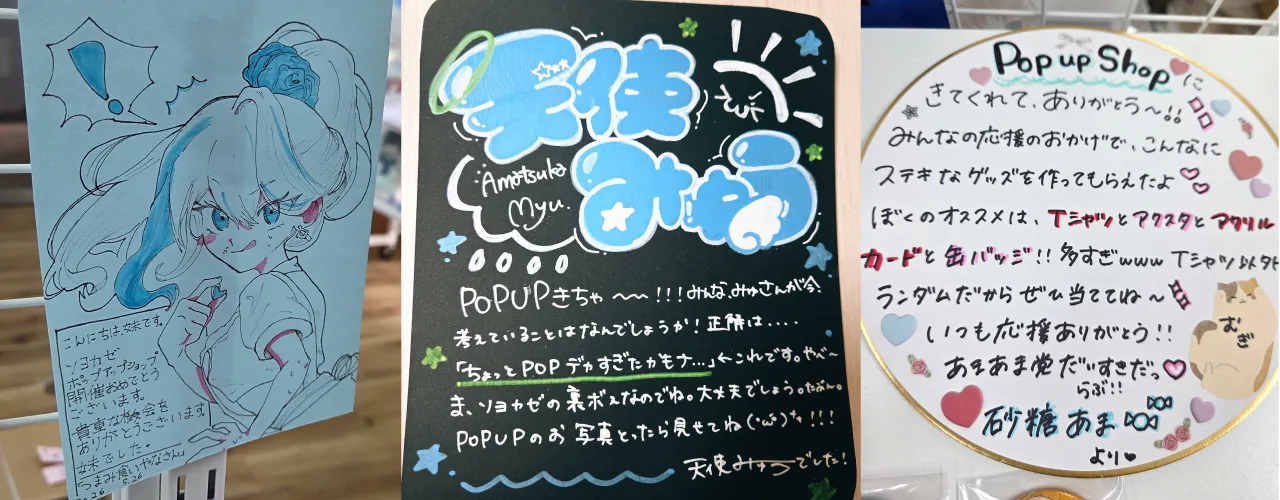 こんにちは、妹です。
ソヨカゼ
ポップアップショップ
開催おめでとう
ございます。
貴重な機会を
ありがとうございます。
妹でした。
つまみ食いやなさん」
天使
みゅう
Amatsuka
Myu.
POPUPきちゃ〜〜!!!みんな、みゅさんが今、
考えていることはなんでしょうか!正解は....
「ちょっとPOPデカすぎたカモナ...」←これです。やべ〜
ま、ソヨカゼの裏ボスなのでね。大丈夫でしょう。たぶん。
POPUPのお写真とったら見せてね(・ω・)!!!
天使みゅうでした!
Pop up Shopに
きてくれて、ありがとう〜!!
みんなの応援のおかげで、こんなに
ステキなグッズを作ってもらえたよ
ぼくのオススメは、Tシャツとアクスタとアクリル
カードと缶バッジ!!多すぎwww Tシャツ以外
ランダムだからぜひ当ててね〜
いつも応援ありがとう!!
あまあま党だいすきだっ♡
らぶ!!
むぎ
砂糖あま
より♥